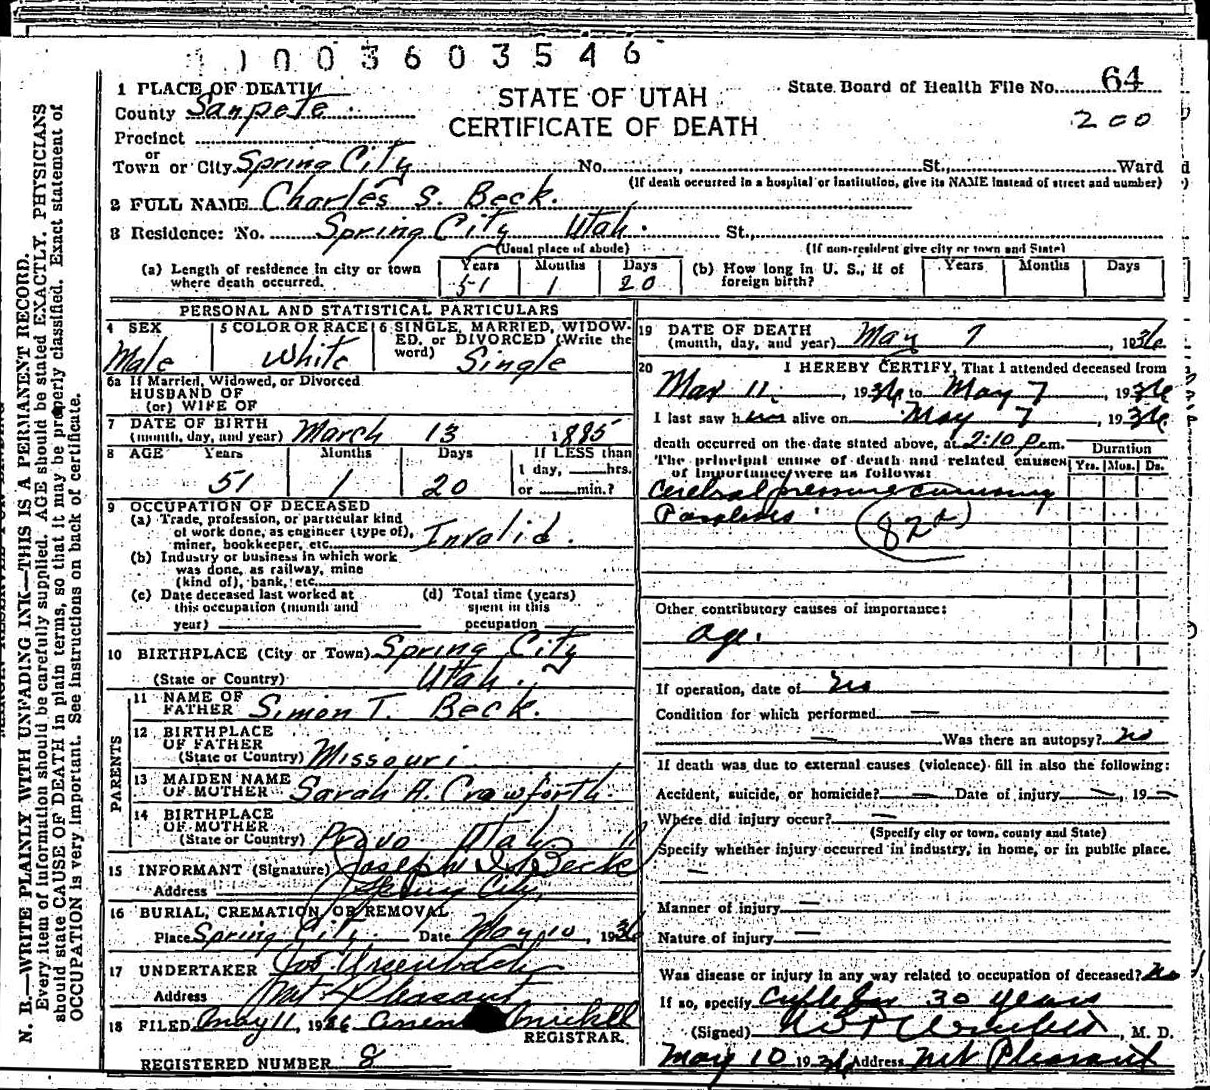 1 0 0 3 6 0 3 5 4 6
1 PLACE OF DEATH
County Sanpete
Precinct
or
Town or City Spring City No. , St., Ward
(If death occurred in a hospital or institution, give its NAME instead of street and number)
STATE OF UTAH
CERTIFICATE OF DEATH
State Board of Health File No. 64
200
2 FULL NAME Charles S. Beck.
3 Residence: No. Spring City Utah. St.,
(Usual place of abode) (If non-resident give city or town and State)
(a) Length of residence in city or town where death occurred. Years 51 Months 1 Days 20
(b) How long in U. S., if of foreign birth? Years Months Days
PERSONAL AND STATISTICAL PARTICULARS
4 SEX Male
5 COLOR OR RACE White
6 SINGLE, MARRIED, WIDOWED, or DIVORCED (Write the word) Single
6a If Married, Widowed, or Divorced
HUSBAND OF
(or) WIFE OF
7 DATE OF BIRTH
(month, day, and year) March 13 1885
8 AGE Years 51 Months 1 Days 20 If LESS than
1 day, hrs.
or min.?
9 OCCUPATION OF DECEASED
(a) Trade, profession, or particular kind
of work done, as engineer (type of),
miner, bookkeeper, etc. Invalid.
(b) Industry or business in which work
was done, as railway, mine
(kind of), bank, etc.
(c) Date deceased last worked at
this occupation (month and
year)
(d) Total time (years)
spent in this
occupation
10 BIRTHPLACE (City or Town) Spring City
(State or Country) Utah.
PARENTS
11 NAME OF
FATHER Simon T. Beck.
12 BIRTHPLACE
OF FATHER
(State or Country) Missouri
13 MAIDEN NAME
OF MOTHER Sarah A. Crawforth.
14 BIRTHPLACE
OF MOTHER
(State or Country) Provo Utah.
15 INFORMANT (Signature) Joseph W. Beck
Address Spring City,
16 BURIAL, CREMATION, OR REMOVAL
Place Spring City Date May 10, 1936
17 UNDERTAKER
Address Mt Pleasant
18 FILED May 11, 1936
REGISTRAR.
REGISTERED NUMBER 8
19 DATE OF DEATH
(month, day, and year) May 7, 1936
20 I HEREBY CERTIFY, That I attended deceased from
Mar 11, 1936 to May 7, 1936
I last saw him alive on May 7, 1936
death occurred on the date stated above, at 2:10 p.m.
The principal cause of death and related causes
of importance were as follows:
Duration
Yrs. Mos. Ds.
Cerebral pressure causing
(82a)
Other contributory causes of importance:
Age.
If operation, date of no
Condition for which performed —
— Was there an autopsy? no
If death was due to external causes (violence) fill in also the following:
Accident, suicide, or homicide? — Date of injury —, 19 —
Where did injury occur? —
(Specify city or town, county and State)
Specify whether injury occurred in industry, in home, or in public place.
—
Manner of injury —
Nature of injury —
Was disease or injury in any way related to occupation of deceased? No
If so, specify 30 years
(Signed) , M. D.
May 10 1936 Address Mt Pleasant
N. B.—WRITE PLAINLY WITH UNFADING INK—THIS IS A PERMANENT RECORD.
Every item of information should be carefully supplied. AGE should be stated EXACTLY. PHYSICIANS
should state CAUSE OF DEATH in plain terms, so that it may be properly classified. Exact statement of
OCCUPATION is very important. See instructions on back of certificate.